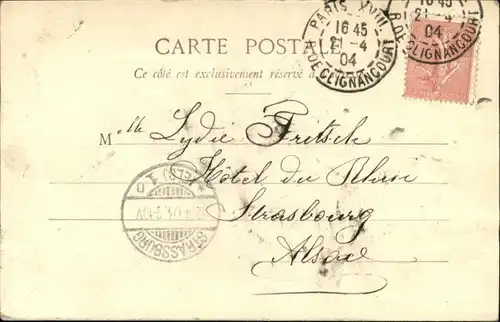 PARIS XVIII
16 45
21 - 4
04
R. DE CLIGNANCOURT
16 45
21 - 4
04
R. DE CLIGNANCOURT
CARTE POSTALE
Ce côté est exclusivement réservé à
Melle Lydie Fritsch
Hôtel du Rhin
Strasbourg
Alsace
STRASSBURG
(ELS) 1 D